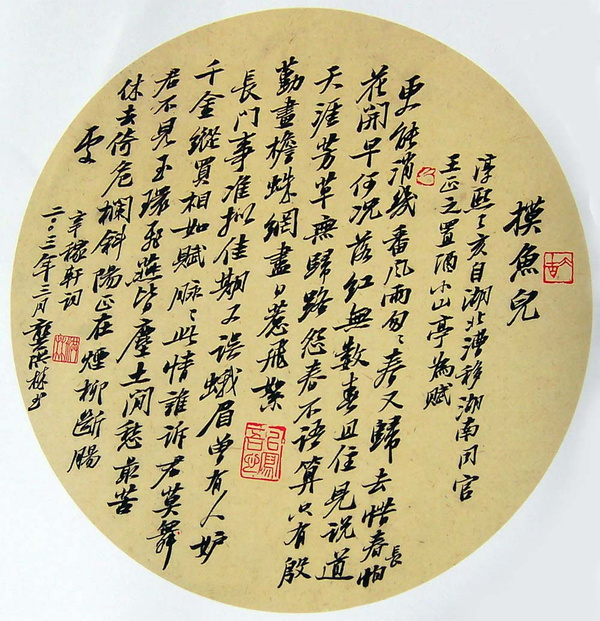 摸魚兒
淳熙己亥自湖北漕移湖南同官
王正之置酒小山亭為賦
更能消幾番風雨匆々春又歸去惜春長怕
花開早何況落紅無數春且住見說道
天涯芳草無歸路怨春不語算只有殷
勤畫檐蛛網盡日惹飛絮
長門事准擬佳期又誤蛾眉曾有人妒
千金縱買相如賦脉々此情誰訴君莫舞
君不見玉環飛燕皆塵土閒愁最苦
休去倚危欄斜陽正在煙柳斷腸
處
辛稼軒詞
二〇〇三年三月龔洪林書